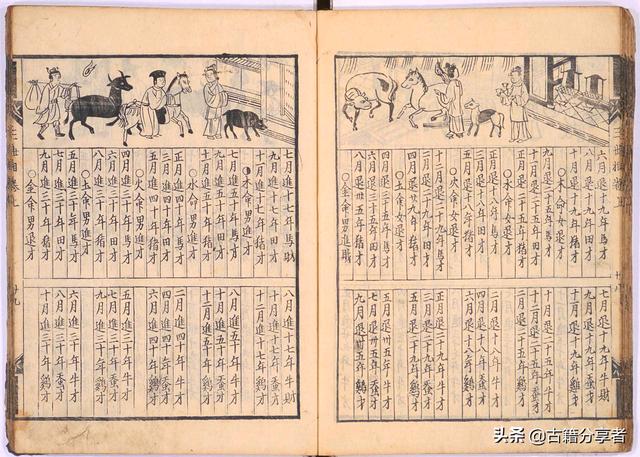 六月退十九年馬才
八月退十九年田才
十月退十九年猪才
○木命女退才
○水命女退才
正月退十八年馬才
三月退十八年田才
五月退十八年猪才
○火命女退才
十二月退二十九年馬才
二月退二十九年田才
四月退廿九年猪才
○土命女退才
八月退卅五年猪才
○金命男進賬
七月退十九年牛財
九月退十九年蚕才
十一月退十九年雞才
十月退二十五年牛才
十二月退二十五年蚕才
二月退二十五年鷄才
二月退十八年牛才
四月退十八年蚕才
六月退十八年鷄才
正月退二十九年牛才
三月退二十九年蚕才
五月退二十九年鷄才
五月退卅五年牛才
七月退卅五年蚕才
九月退卅五年鷄才
七月進十七年馬財
九月進十七年田才
十一月進十七年猪才
○木命男進才
七月進五十年馬才
九月進五十年田才
十一月進五十年猪才
○水命男進才
正月進四十年馬才
三月進四十年田才
五月進四十年猪才
○火命男進才
四月進三十年馬才
六月進三十年田才
八月進三十年猪才
○土命男進才
五月進二十年馬才
七月進二十年田才
九月進二十年猪才
○金命男退才
八月進十七年牛財
十月進十七年蚕才
十二月進十七年鷄才
八月進五十年牛才
十月進五十年蚕才
十二月進五十年鷄才
二月進四十年牛才
四月進四十年蚕才
六月進四十年鷄才
五月進三十年牛才
七月進三十年蚕才
九月進三十年鷄才
六月進二十年牛才
八月進二十年蚕才
十月進二十年鷄才
廿九
头条 @古籍分享者